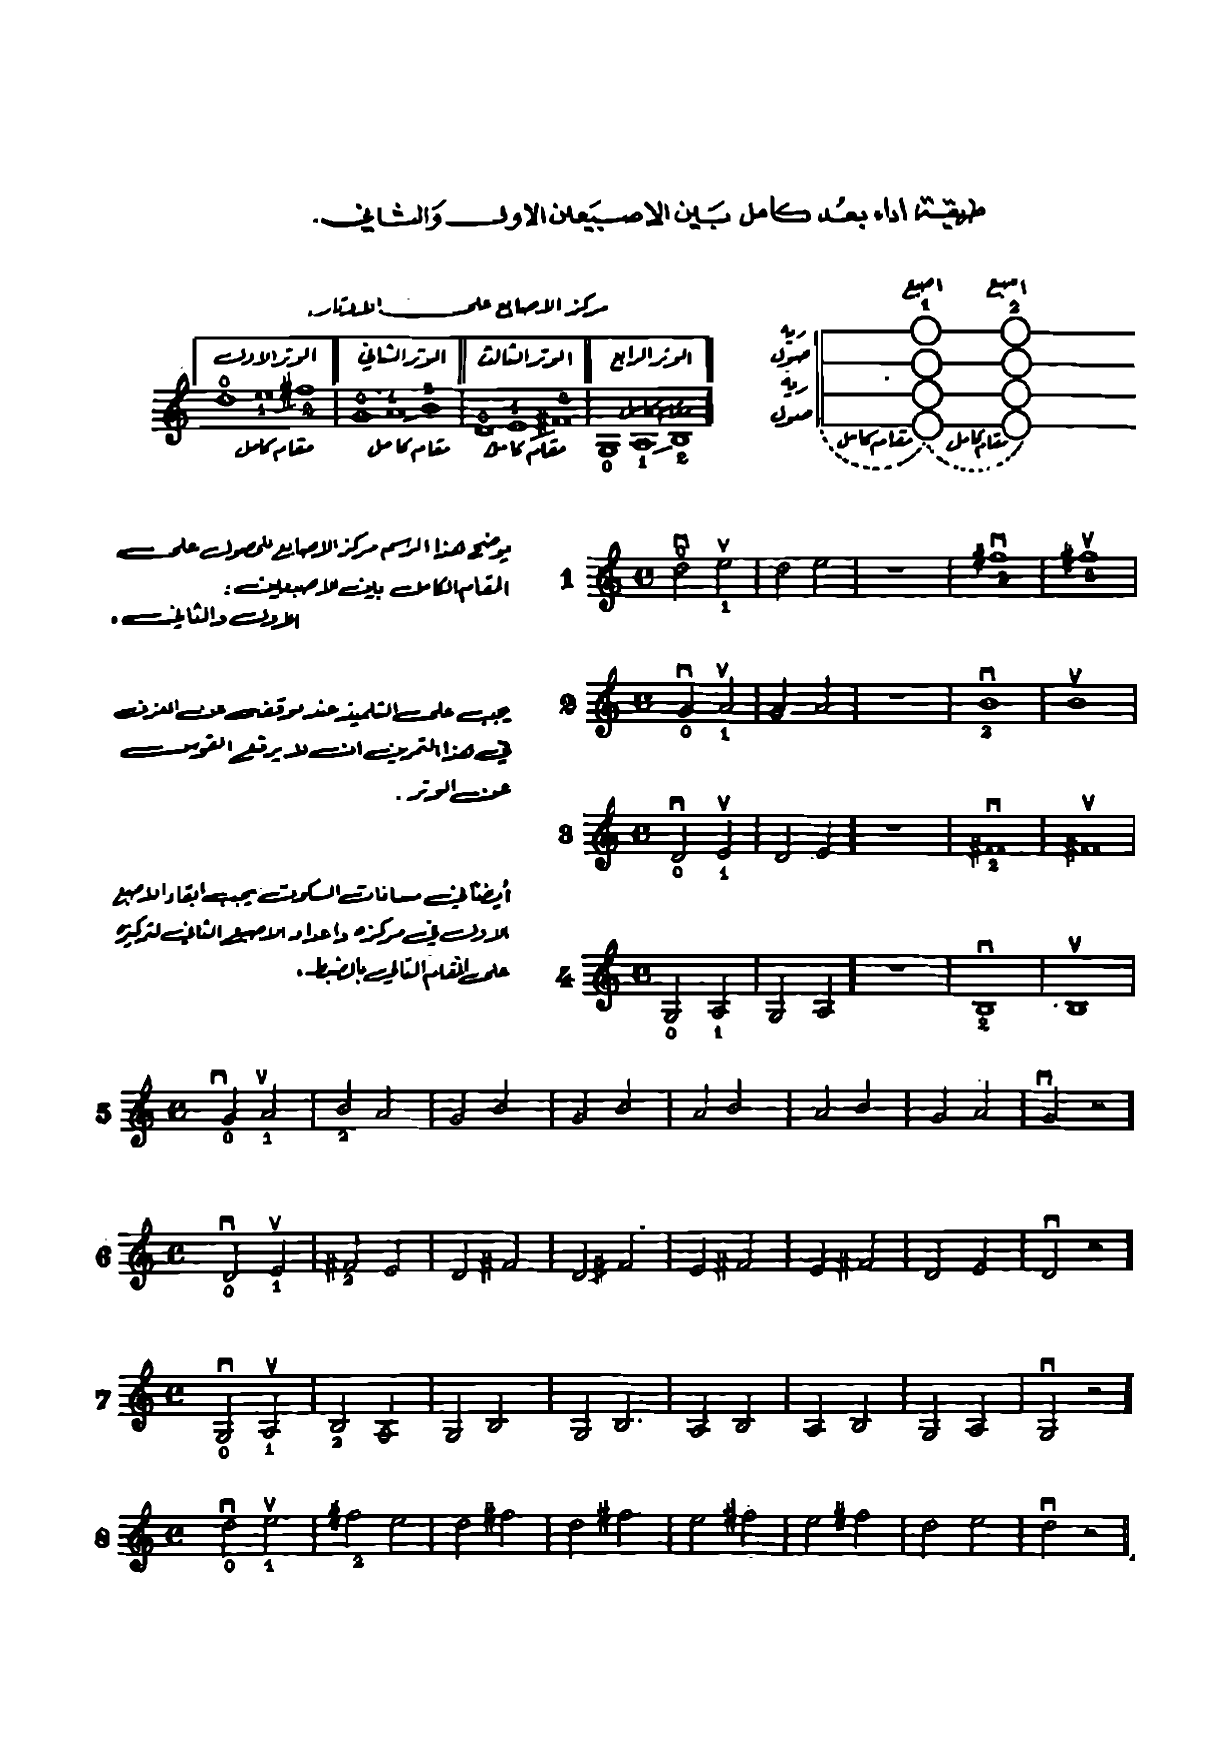 طريقة اداء بعد كامل بين الاصبعين الاول والثاني.
اصبع
1
اصبع
2
مركز الاصابع على الاوتار.
الوتر الاول
الوتر الثاني
الوتر الثالث
الوتر الرابع
0 1 2
0 1 2
0 1 2
0 1 2
مقام كامل
مقام كامل
مقام كامل
مقام كامل
ريه
صول
ريه
صول
مقام كامل
مقام كامل
يوضح هذا الرسم مركز الاصابع للحصول على
المقام الكامل بين الاصبعين:
الاول والثاني.
يجب على التلميذ عند توقفه عن العزف
في هذا التمرين ان لا يرفع القوس
عن الوتر.
أيضاً في مسافات السكوت يجب ابقاء الاصبع
الاول في مركزه واعداد الاصبع الثاني لتركيزه
على المقام التالي بالضبط.
1
0 1 2 2
2
0 1 2
3
0 1 2
4
0 1 2
5
0 1 2
6
0 1 2
7
0 1 2
8
0 1 2